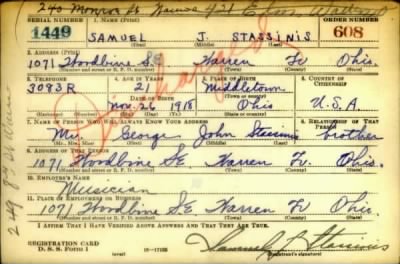 240 Monroe St.
SERIAL NUMBER 1. NAME (Print) ORDER NUMBER
1449 SAMUEL J. STASSINIS 608
(First) (Middle) (Last)
2. ADDRESS (Print)
1071 Woodbine SE Warren Tr Ohio.
(Number and street or R. F. D. number) (Town) (County) (State)
3. TELEPHONE 4. AGE IN YEARS 5. PLACE OF BIRTH 6. COUNTRY OF CITIZENSHIP
3083R 21 Middletown
DATE OF BIRTH (Town or county)
Nov. 26 1918 Ohio U.S.A
(Mo.) (Day) (Yr.) (State or country)
7. NAME OF PERSON WHO WILL ALWAYS KNOW YOUR ADDRESS 8. RELATIONSHIP OF THAT PERSON
Mr. George John Stassinis brother
(Mr., Mrs., Miss) (First) (Middle) (Last)
9. ADDRESS OF THAT PERSON
1071 Woodbine SE Warren Tr. Ohio
(Number and street or R. F. D. number) (Town) (County) (State)
10. EMPLOYER'S NAME
Musician
11. PLACE OF EMPLOYMENT OR BUSINESS
1071 Woodbine S.E. Warren Tr. Ohio
(Number and street or R. F. D. number) (Town) (County) (State)
I AFFIRM THAT I HAVE VERIFIED ABOVE ANSWERS AND THAT THEY ARE TRUE.
REGISTRATION CARD
D. S. S. FORM 1 (over) Samuel J. Stassinis
(Registrant's signature)
Discharged